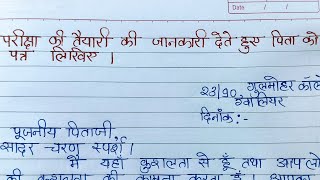 Date
परीक्षा की तैयारी की जानकारी देते हुए पिता को
पत्र लिखिए ।
23/90, गुलमोहर कॉलो
ग्वालियर
दिनांक :-
पूजनीय पिताजी,
सादर चरण स्पर्श ।
मैं यहाँ कुशलता से हूँ तथा आप लो
की कुशलता की कामना करता हूँ । आपका